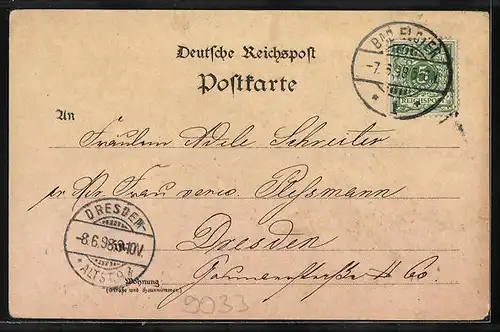 Deutsche Reichspost
Postkarte
BAD ELSTER
-7.6.98
5
REICHSPOST
An
Fräulein Adele Schreiter
pr Adr. Frau verw. Plessmann
DRESDEN
-8.6.98 9-10V.
* ALTST.
Dresden
Wohnung
(Straße und Hausnummer)
9033